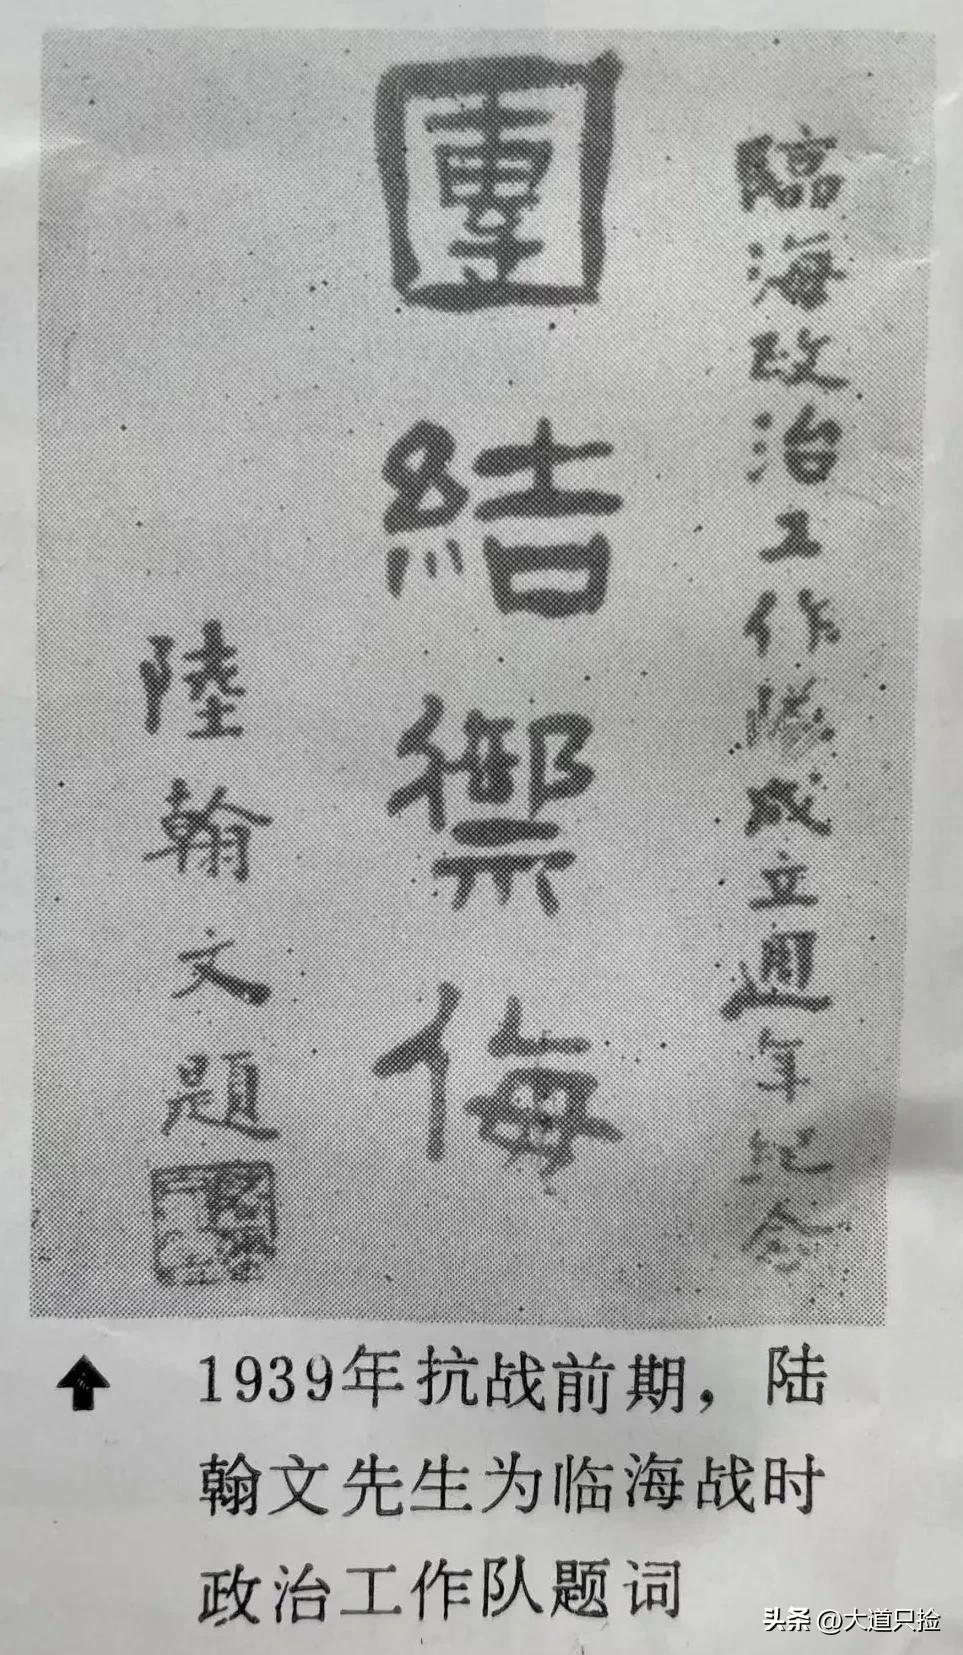 臨海政治工作隊成立週年紀念
團結禦侮
陸翰文題
1939年抗战前期，陆
翰文先生为临海战时
政治工作队题词
头条 @大道只捡